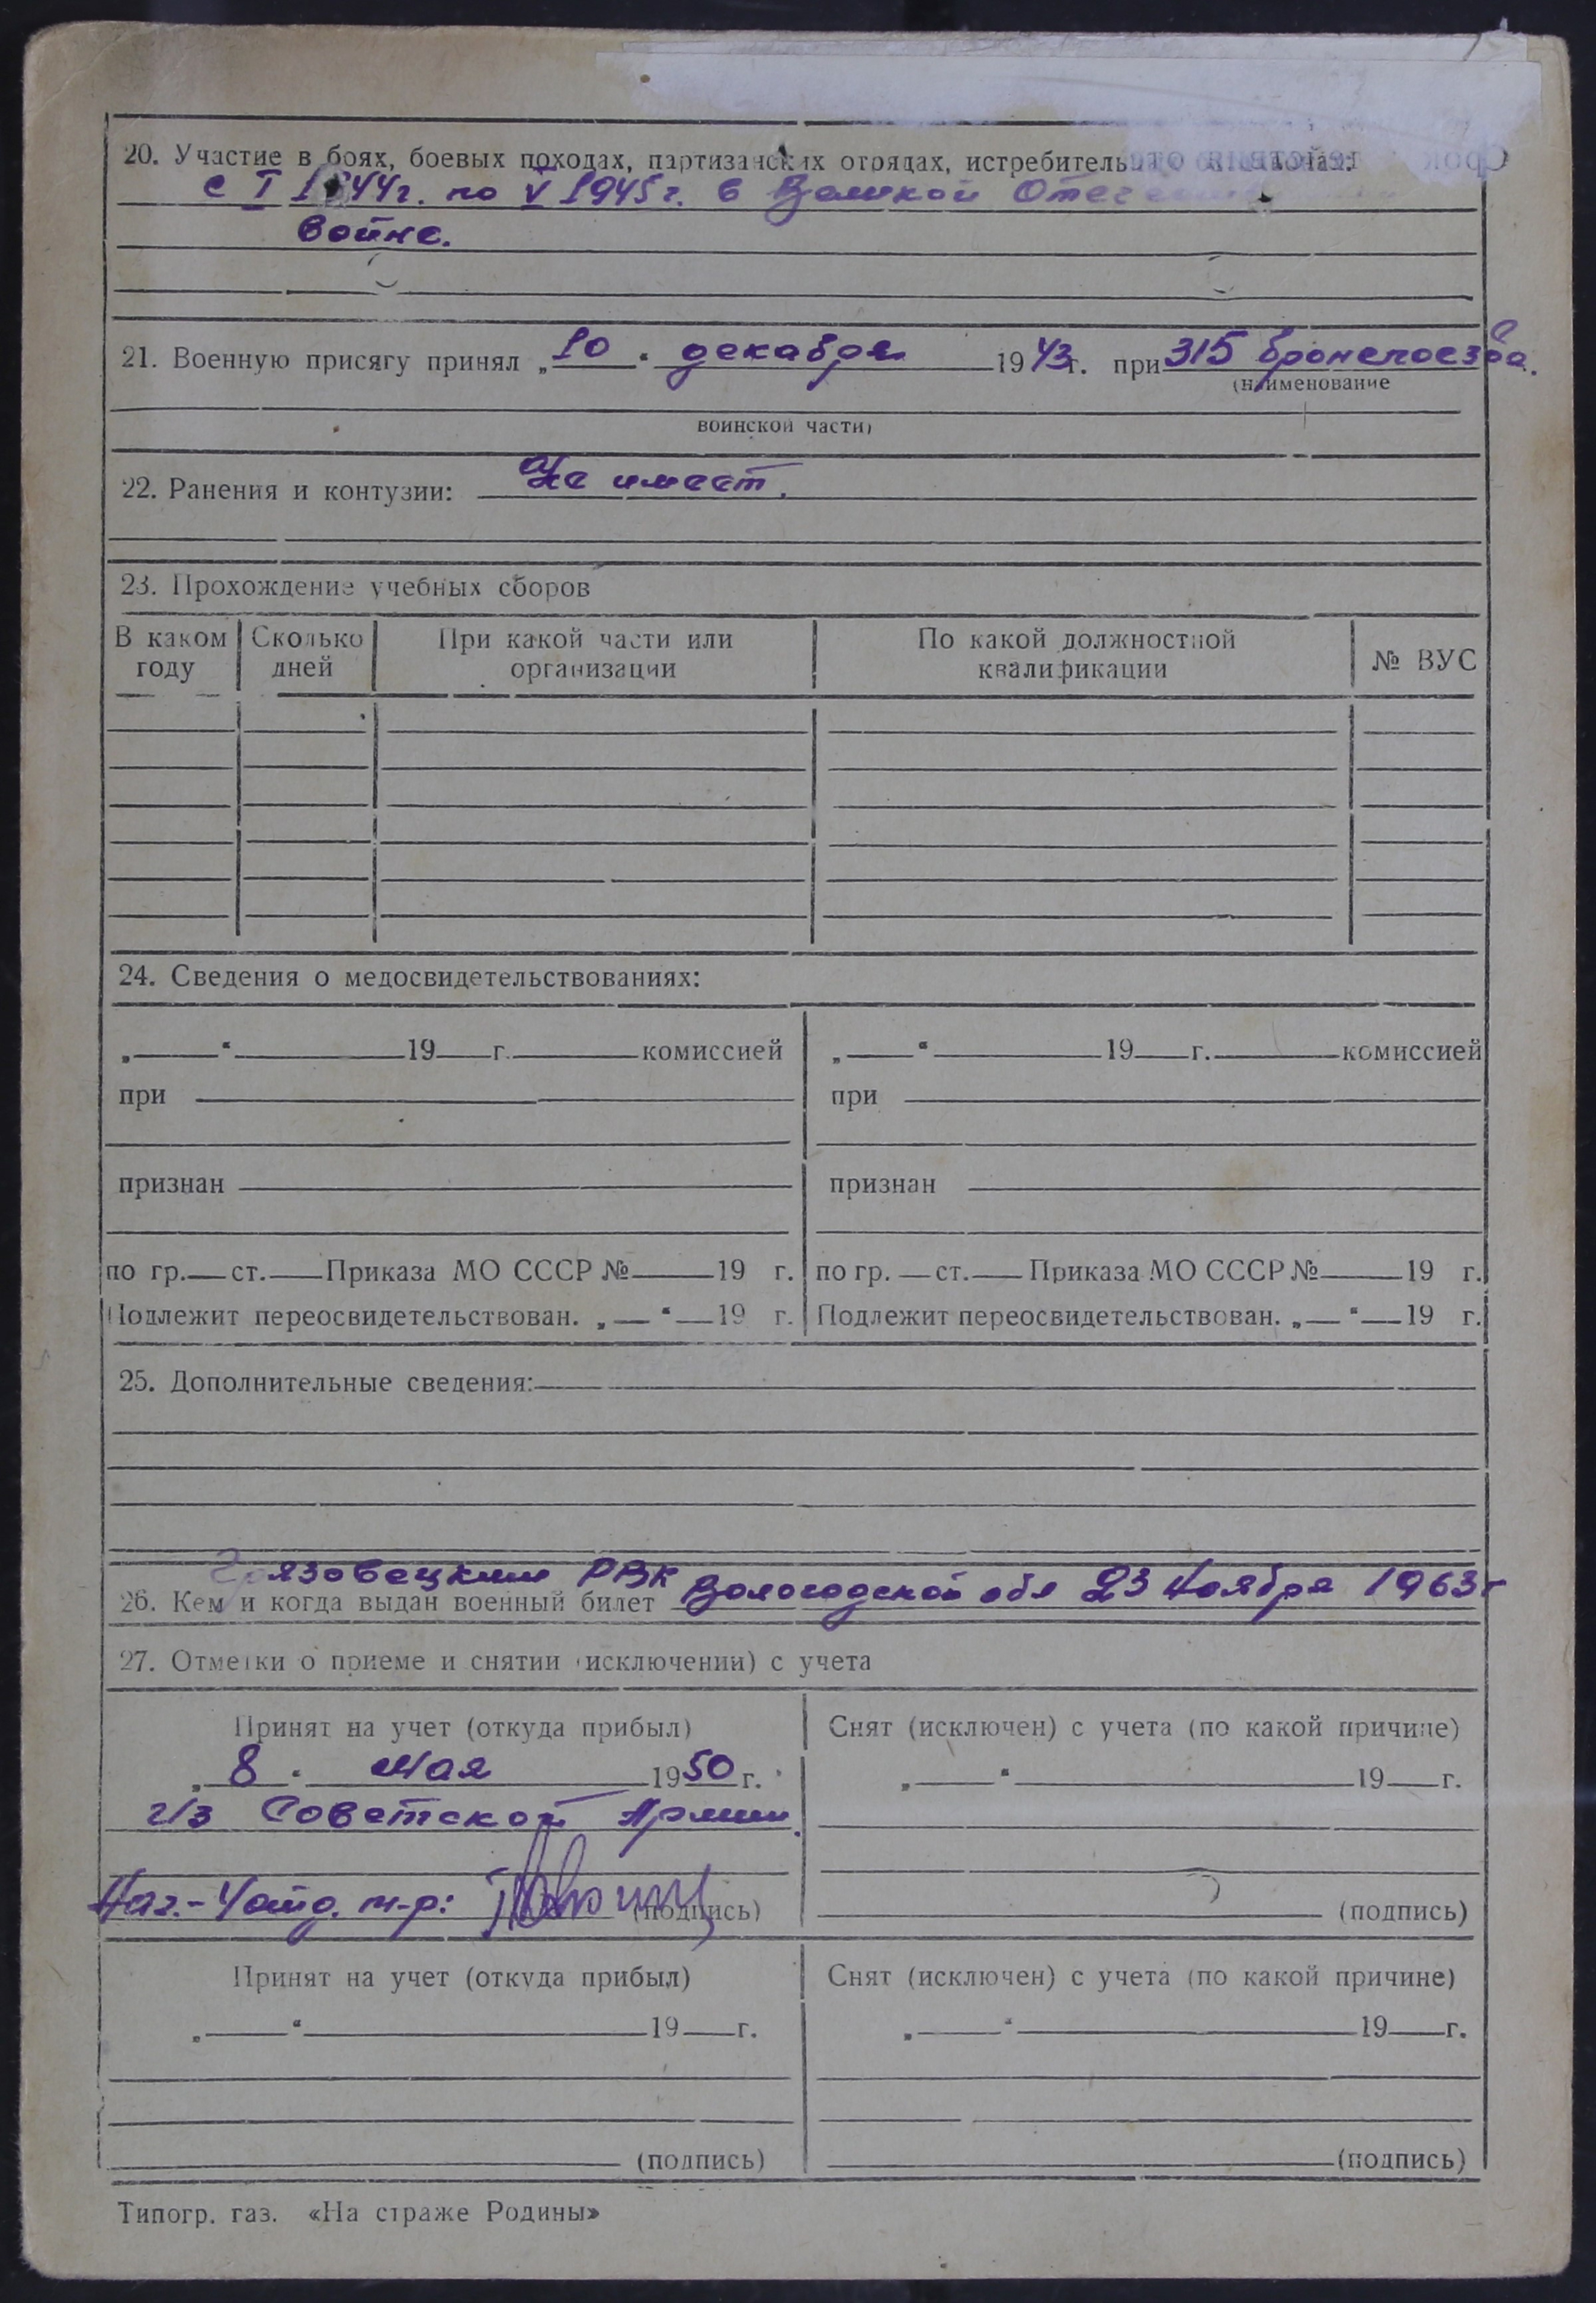 20. Участие в боях, боевых походах, партизанских отрядах, истребительных
с I 1944г. по V 1945г. в Великой
войне.
21. Военную присягу принял „10“ декабря 1943г. при 315 бронепоезда.
(наименование
воинской части)
22. Ранения и контузии: Не имеет.
23. Прохождение учебных сборов
В каком году Сколько дней При какой части или организации По какой должностной квалификации № ВУС
24. Сведения о медосвидетельствованиях:
„ “ 19 г. комиссией „ “ 19 г. комиссией
при при
признан признан
по гр. ст. Приказа МО СССР № 19 г. по гр. ст. Приказа МО СССР № 19 г.
Подлежит переосвидетельствован. „ “ 19 г. Подлежит переосвидетельствован. „ “ 19 г.
25. Дополнительные сведения:
Грязовецким РВК
26. Кем и когда выдан военный билет Вологодской обл 23 Ноября 1963г
27. Отметки о приеме и снятии (исключении) с учета
Принят на учет (откуда прибыл) Снят (исключен) с учета (по какой причине)
„8“ Мая 1950 г. „ “ 19 г.
Из Советской Армии.
Нач. м-р: (подпись) (подпись)
Принят на учет (откуда прибыл) Снят (исключен) с учета (по какой причине)
„ “ 19 г. „ “ 19 г.
(подпись) (подпись)
Типогр. газ. «На страже Родины»